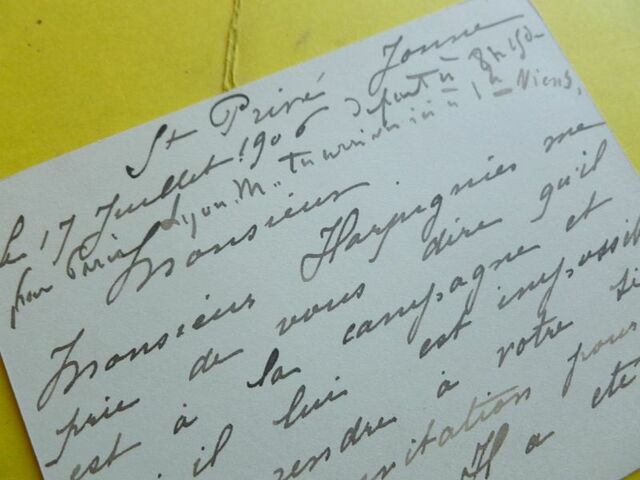 St Privé Yonne
Le 17 Juillet 1906 départ à 8h50
pour Paris Lyon. M. Tu arrives ici à 1h Viens,
Monsieur
Monsieur Harpignies me
prie de vous dire qu'il
est à la campagne et
il lui est impossib
rendre à votre
invitation pour
Il a ete